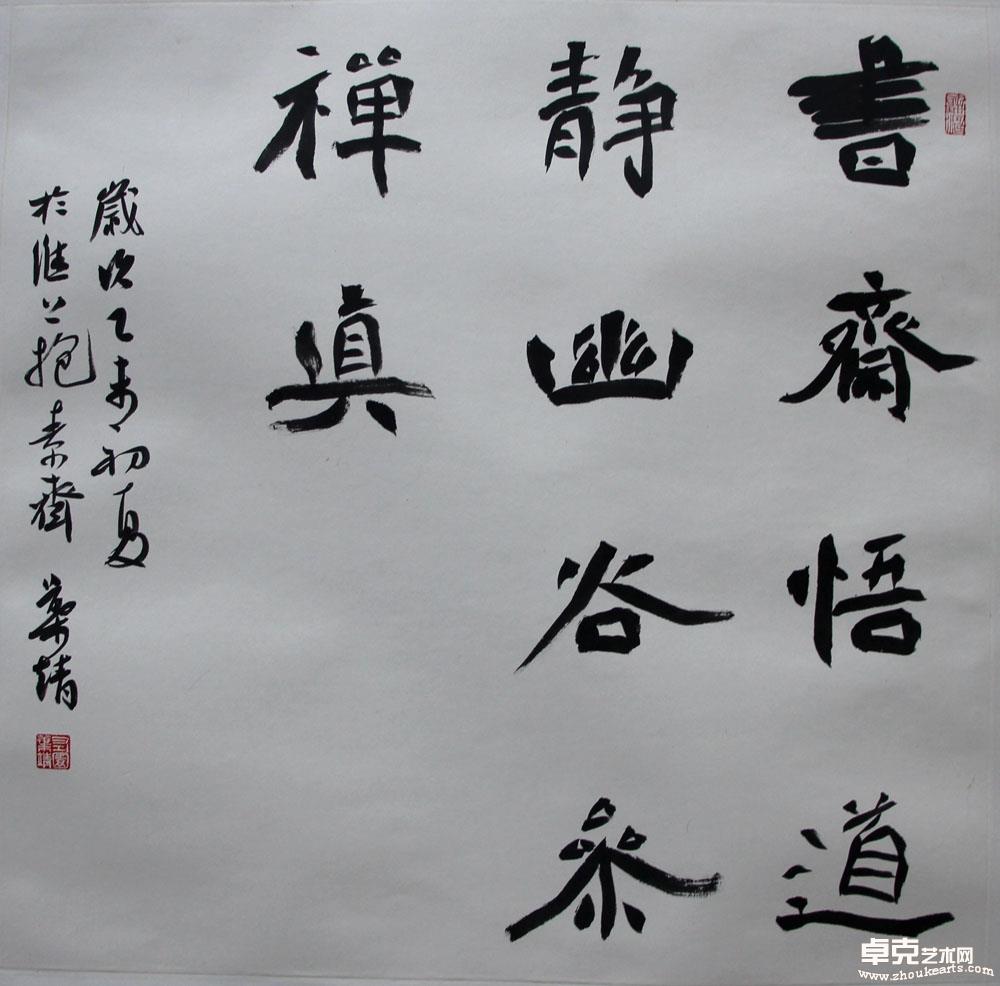 書齋悟道
静幽谷參
禅真
歲次乙未初夏
於淮上抱素齋 葉靖
卓克艺术网
www.zhoukearts.com